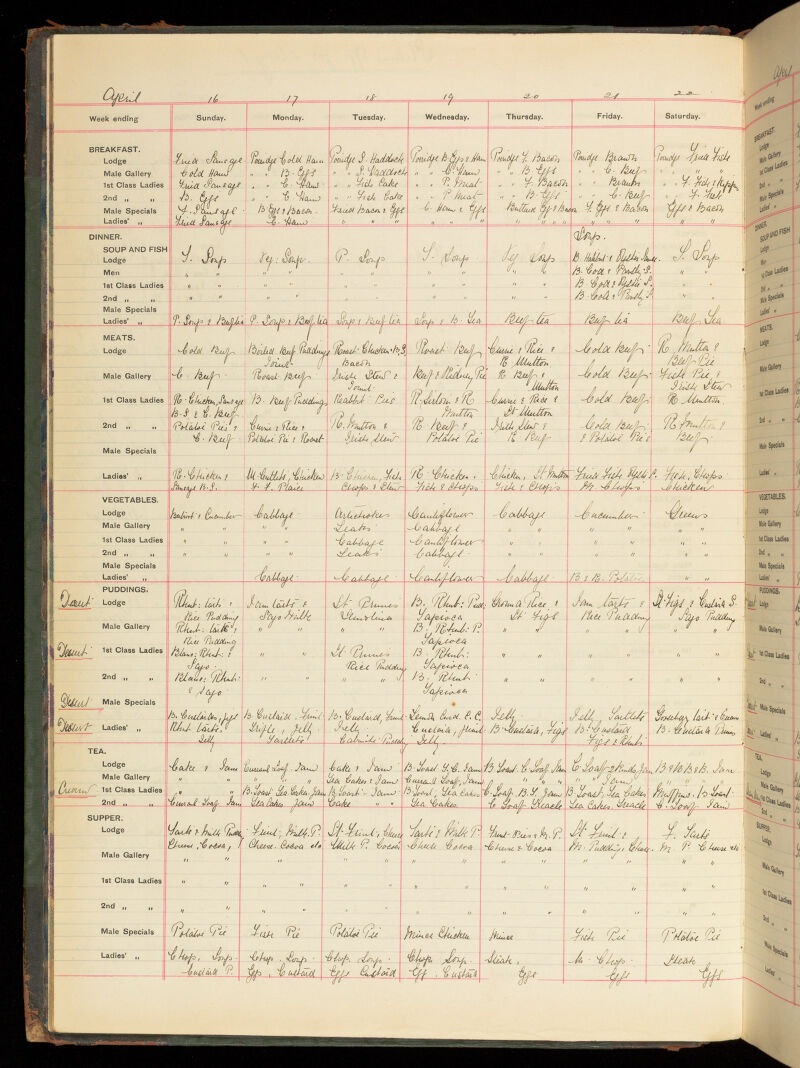 April 16 17 18 19 20 21 22
Week ending Sunday. Monday. Tuesday. Wednesday. Thursday. Friday. Saturday.
BREAKFAST.
Lodge Fried Sausage Porridge Cold Ham Porridge F. Haddock Porridge B. Eggs & Ham Porridge F. Bacon Porridge Brawn Porridge Fried Fish
Male Gallery Cold Ham " " B. Eggs " " F. Haddock " " C. Ham " " B. Eggs " " C. Beef " " " "
1st Class Ladies Fried Sausage " " C. Ham " " Fish Cake " " P. Meat " " F. Bacon " " Brawn " " F. Fish & Kipper
2nd " " B. Eggs " " C Ham " " Fish Cake " " P Meat " " B Eggs " " C. Beef " " F. Fish
Male Specials F. Sausage B. Eggs & Bacon Fried Bacon & Eggs C. Ham & Eggs Buttered Eggs & Bacon F. Eggs & Bacon Eggs & Bacon
Ladies' " Fried Sausage C. Ham " " " " " " " " " " " "
DINNER.
SOUP AND FISH
Soup.
Lodge S. Soup Veg: Soup. P. Soup S. Soup Veg Soup B. Halibut & Oyster Sauce S. Soup
Men " " " " " " " " " " B. Cod & Parsly S. " "
1st Class Ladies " " " " " " " " " " B. Cod & Oyster S. " "
2nd " " " " " " " " " " " " B. Cod & Parsly S " "
Male Specials
Ladies' " P. Soup & Beef tea P. Soup & Beef tea Soup & Beef tea Soup & B. Tea Beef tea Beef tea Beef Tea
MEATS.
Lodge Cold Beef Boiled Beef Puddings Roast Chicken B.S. Roast Beef Currie & Rice & Cold Beef R. Mutton &
Joint Bacon R. Mutton Beef Pie
Male Gallery C. Beef Roast Beef Irish Stew & Beef & Kidney Pie R Beef & Cold Beef Fish Pie &
Joint Mutton Irish Stew
1st Class Ladies R. Chicken, Sausage B. Beef Pudding Rabbit Pie R. Sirloin & R. Currie & Rice & Cold Beef R. Mutton
B.S. & C. Beef Mutton Mutton
2nd " " Potatoe Pie & Currie & Rice & R. Mutton & R. Beef & Irish Stew & Cold Beef R. Mutton &
C. Beef Potatoe Pie & Roast Irish Stew Potatoe Pie R. Beef & Potatoe Pie Beef
Male Specials
Ladies' " R. Chicken & Cutlets, Chicken B. Chicken, Fish R. Chicken. Chicken, Mutton Fried Fish Fish, Chops
B.S. Plaice Chops & Stew Fish & Chops Fish & Chops M. Chops Chicken
VEGETABLES.
Lodge Beetroot & Cucumber Cabbage Artichokes Cauliflower Cabbage Cucumber Greens
Male Gallery " " " " Leaks Cabbage " " " " " "
1st Class Ladies " " " " Cabbage Cauliflower " " " " " "
2nd " " " " " " Leaks Cabbage " " " " " "
Male Specials
Ladies' " Cabbage Cabbage Cauliflower Cabbage B & B. Potatoe " "
PUDDINGS.
Desert Lodge Rhub: tarts & Jam tarts & St. Prunes B. Rhub: Pudd: Ground Rice, & Jam tarts & St Figs & Custard S.
Rice Pudding Sago Milk Semolina Tapioca St. Figs Rice Pudding Sago Pudding
Male Gallery Rhub: tarts & " " " " B. Rhub: P. " " " " " "
Rice Pudding Tapioca
Desert 1st Class Ladies Rhub: & " " St. Prunes B. Rhub: " " " " " "
Sago. Rice Pudding Tapioca
2nd " " Rhub: " " " " B. Rhub: " " " " " "
& Sago Tapioca
Desert Male Specials B. Custard, Figs B. Custard, Fruit B. Custard, Fruit Lemon Curd C.C. Jelly Jelly, Tartlets Gooseberry tart & Cream
Desert Ladies' " Rhub: tarts. Trifle, Jelly Jelly Custard, Fruit B. Custard, Figs B. Custard B. Custard Prunes
Jelly Tartlets Cabinet Pudding Jelly Figs & Rhub
TEA.
Lodge Cake & Jam Currant Loaf Jam Cake & Jam B. Toast G. C. Jam B. Toast C. Loaf Jam C. Loaf 2 Kinds Jam B & B B & B. Jam
Male Gallery " " " " " " Tea Cakes & Jam Currant Loaf, Jam " " " " " " Jam " "
Cream 1st Class Ladies " " B. Toast Tea Cakes Jam B. Toast Jam B. Toast, Tea Cakes C. Loaf B. T. Jam B Toast. Tea Cakes Muffins. B Toast
2nd " " Currant Loaf Jam Tea Cakes Jam Cake " " Tea Cakes C Loaf Treacle Tea Cakes Treacle C. Loaf Jam
SUPPER.
Lodge Tarts & Milk Pudg Fruit, Milk. P. St. Fruit, Cheese Tarts & Milk P. Fruit Pies & M. P. St. Fruit & F. Fruit
Cheese, Cocoa, Cheese. Cocoa etc Milk P. Cocoa Cheese Cocoa Cheese & Cocoa M. Pudding, Cheese. M. P. Cheese etc
Male Gallery " " " " " " " " " " " " " "
1st Class Ladies " " " " " " " " " " " " " "
2nd " " " " " " " " " " " " " " " "
Male Specials Potatoe Pie Fish Pie Potatoe Pie Mince Chicken Mince Fish Pie Potatoe Pie
Ladies' " Chop, Soup. Chop, Soup. Chop, Soup. Chop Soup. Steak, M. Chops Steak
Custard P. Eggs, Custard Eggs Custard Egg. Custard Eggs Eggs Eggs